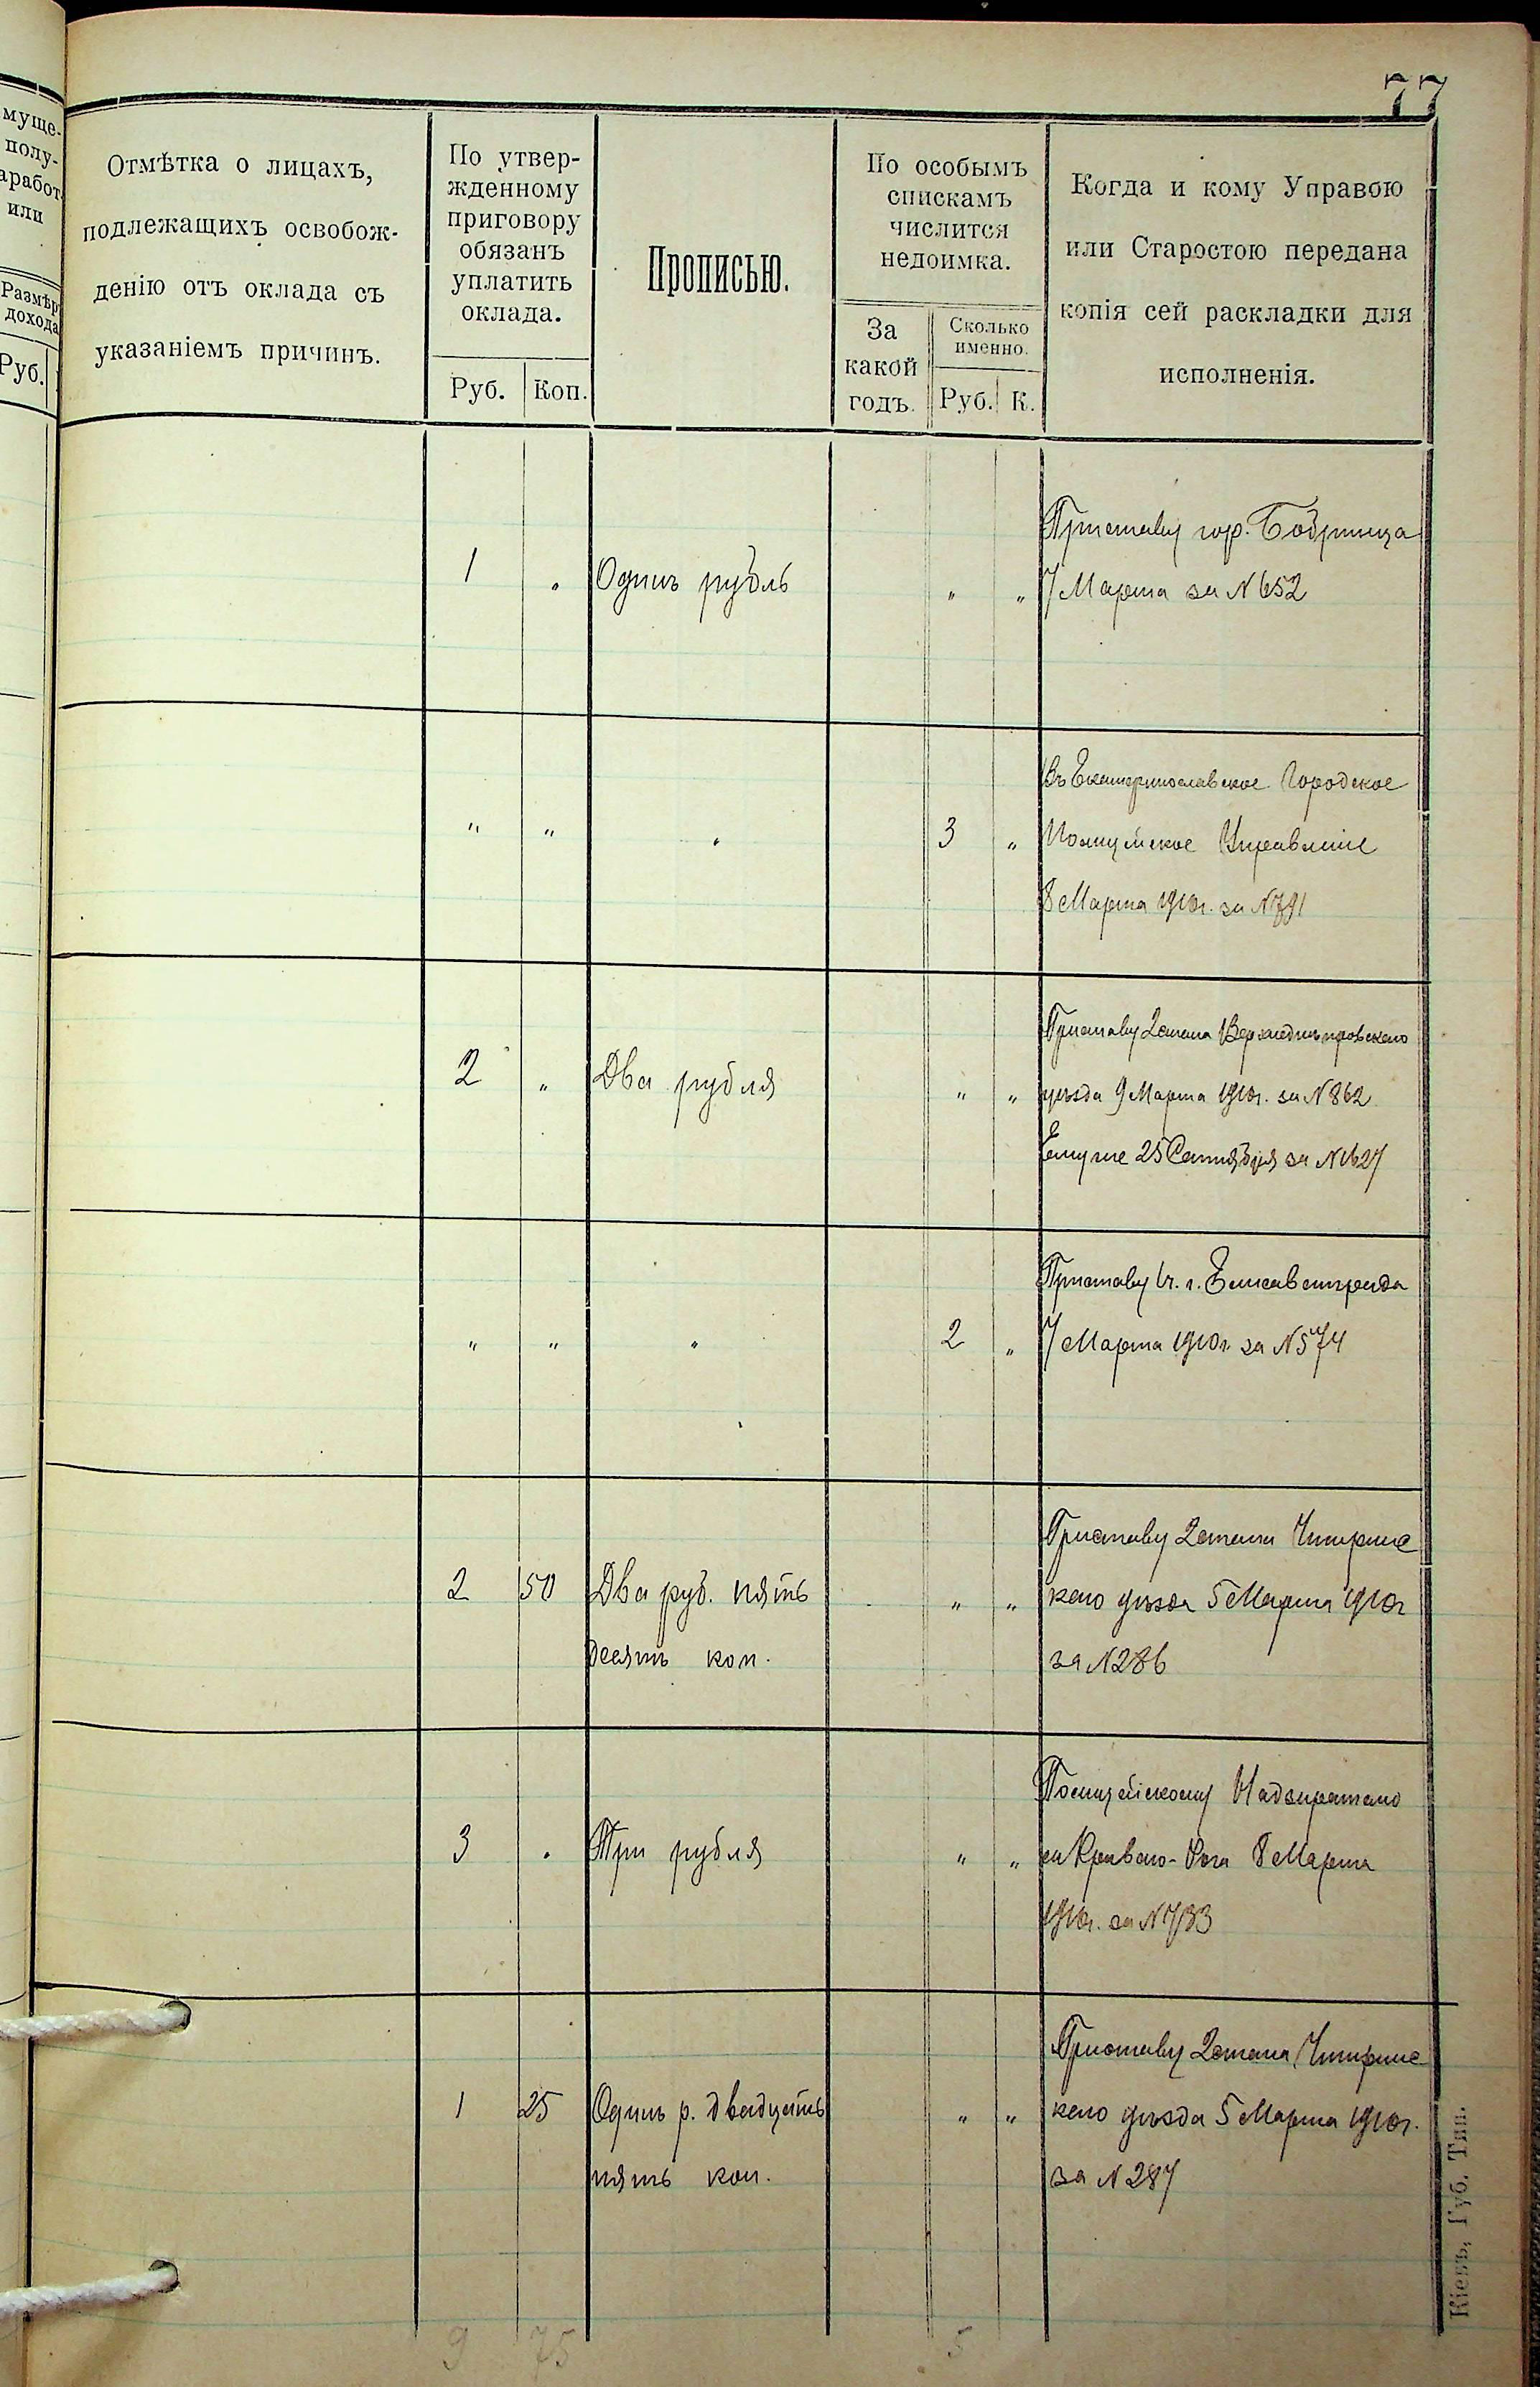 77
муще-
полу-
аработ
или
Размѣр
дохода
Руб.
Отмѣтка о лицахъ,
подлежащихъ освобож-
денію отъ оклада съ
указаніемъ причинъ.
По утвер-
жденному
приговору
обязанъ
уплатить
оклада.
Руб. Коп.
Прописью.
По особымъ
спискамъ
числится
недоимка.
За
какой
годъ.
Сколько
именно.
Руб. К.
Когда и кому Управою
или Старостою передана
копія сей раскладки для
исполненія.
1 „ Одинъ рубль „ „
Приставу гор. Бобринца
7 Марта за N 652
„ „ „ 3 „
Въ Екатеринославское Городское
Полицейское Управленіе
8 Марта 1910г. за N 791
2 „ Два рубля „ „
Приставу 2 стана Верхнеднѣпровскаго
уѣзда 9 Марта 1910г. за N 862
Ему же 25 Сентября за N 1627
„ „ „ 2 „
Приставу 1ч. г. Елисаветграда
7 Марта 1910г. за N 574
2 50 Два руб. пять
десятъ коп. „ „
Приставу 2 стана Чигринс
каго уѣзда 5 Марта 1910г
за N 286
3 „ Три рубля „ „
Полицейскому Надзирателю
м. Кривого-Рога 8 Марта
1910г. за N 783
1 25 Одинъ р. двадцать
пять коп. „ „
Приставу 2 стана Чигринс
каго уѣзда 5 Марта 1910г.
за N 287
9 75 5
Кіевъ, Губ. Тип.